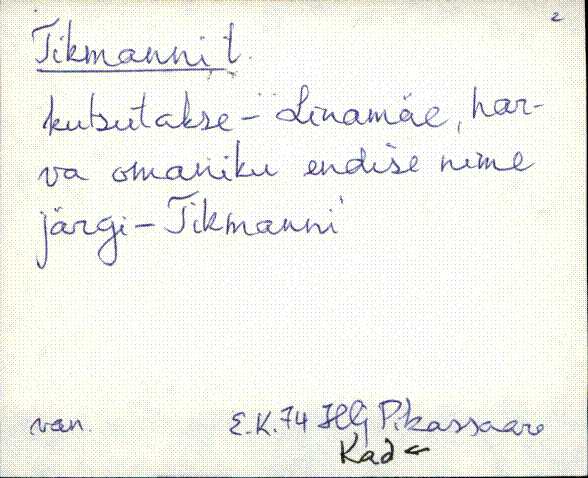 2
Tikmanni t.
kutsutakse - "Linamäe, har-
va omaniku endise nime
järgi - Tikmanni"
van. E.K. 74 HG Pikassaar
Kad ←